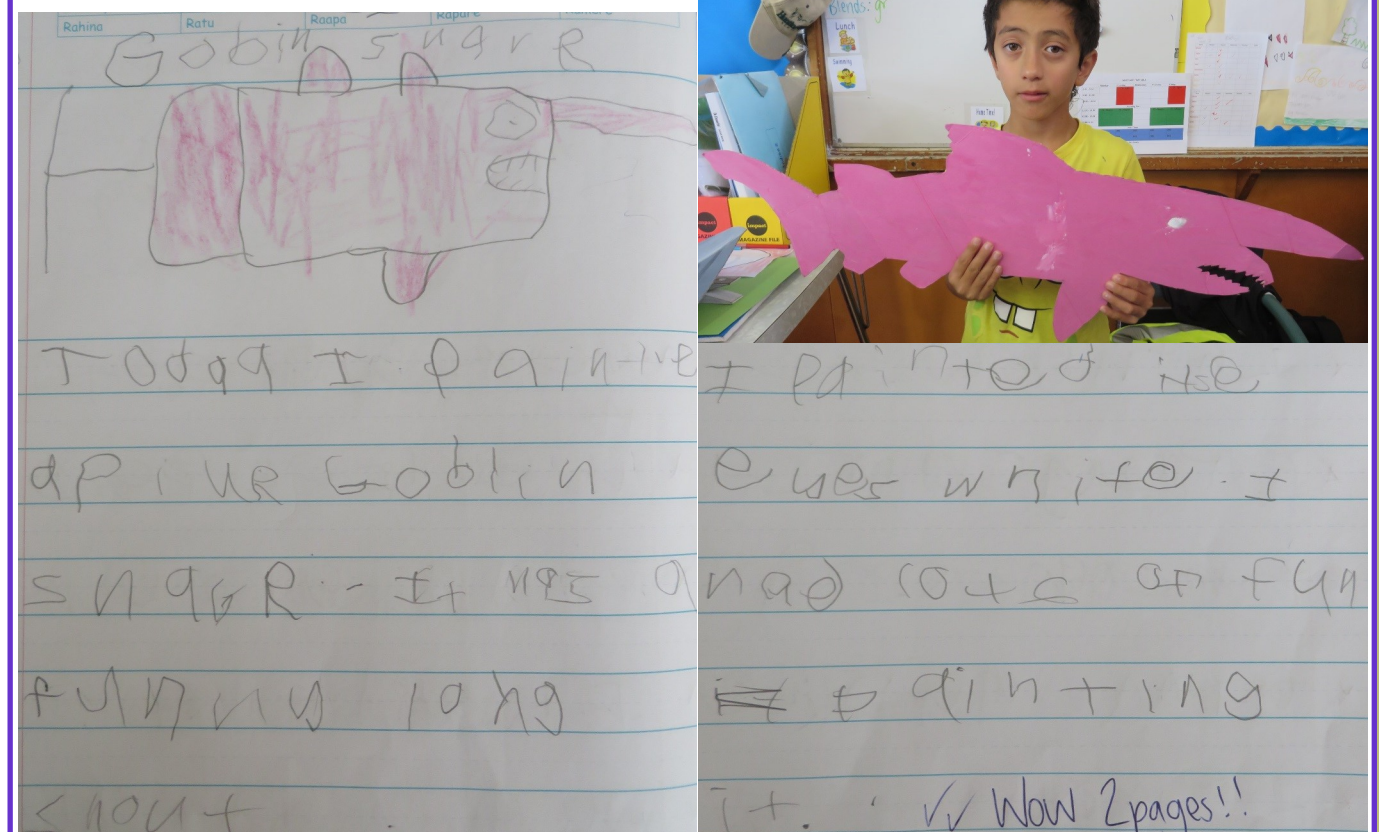 Rahina Ratu Raapa Rapare
Gobin share
Today I painted
a pink Goblin
shark. It has a
funny long
snout.
Blends: gr
Lunch
Swimming
impact
impact
MAGAZINE FILE
I painted its
eyes white. I
had lots of fun
painting
it. Wow 2pages!!